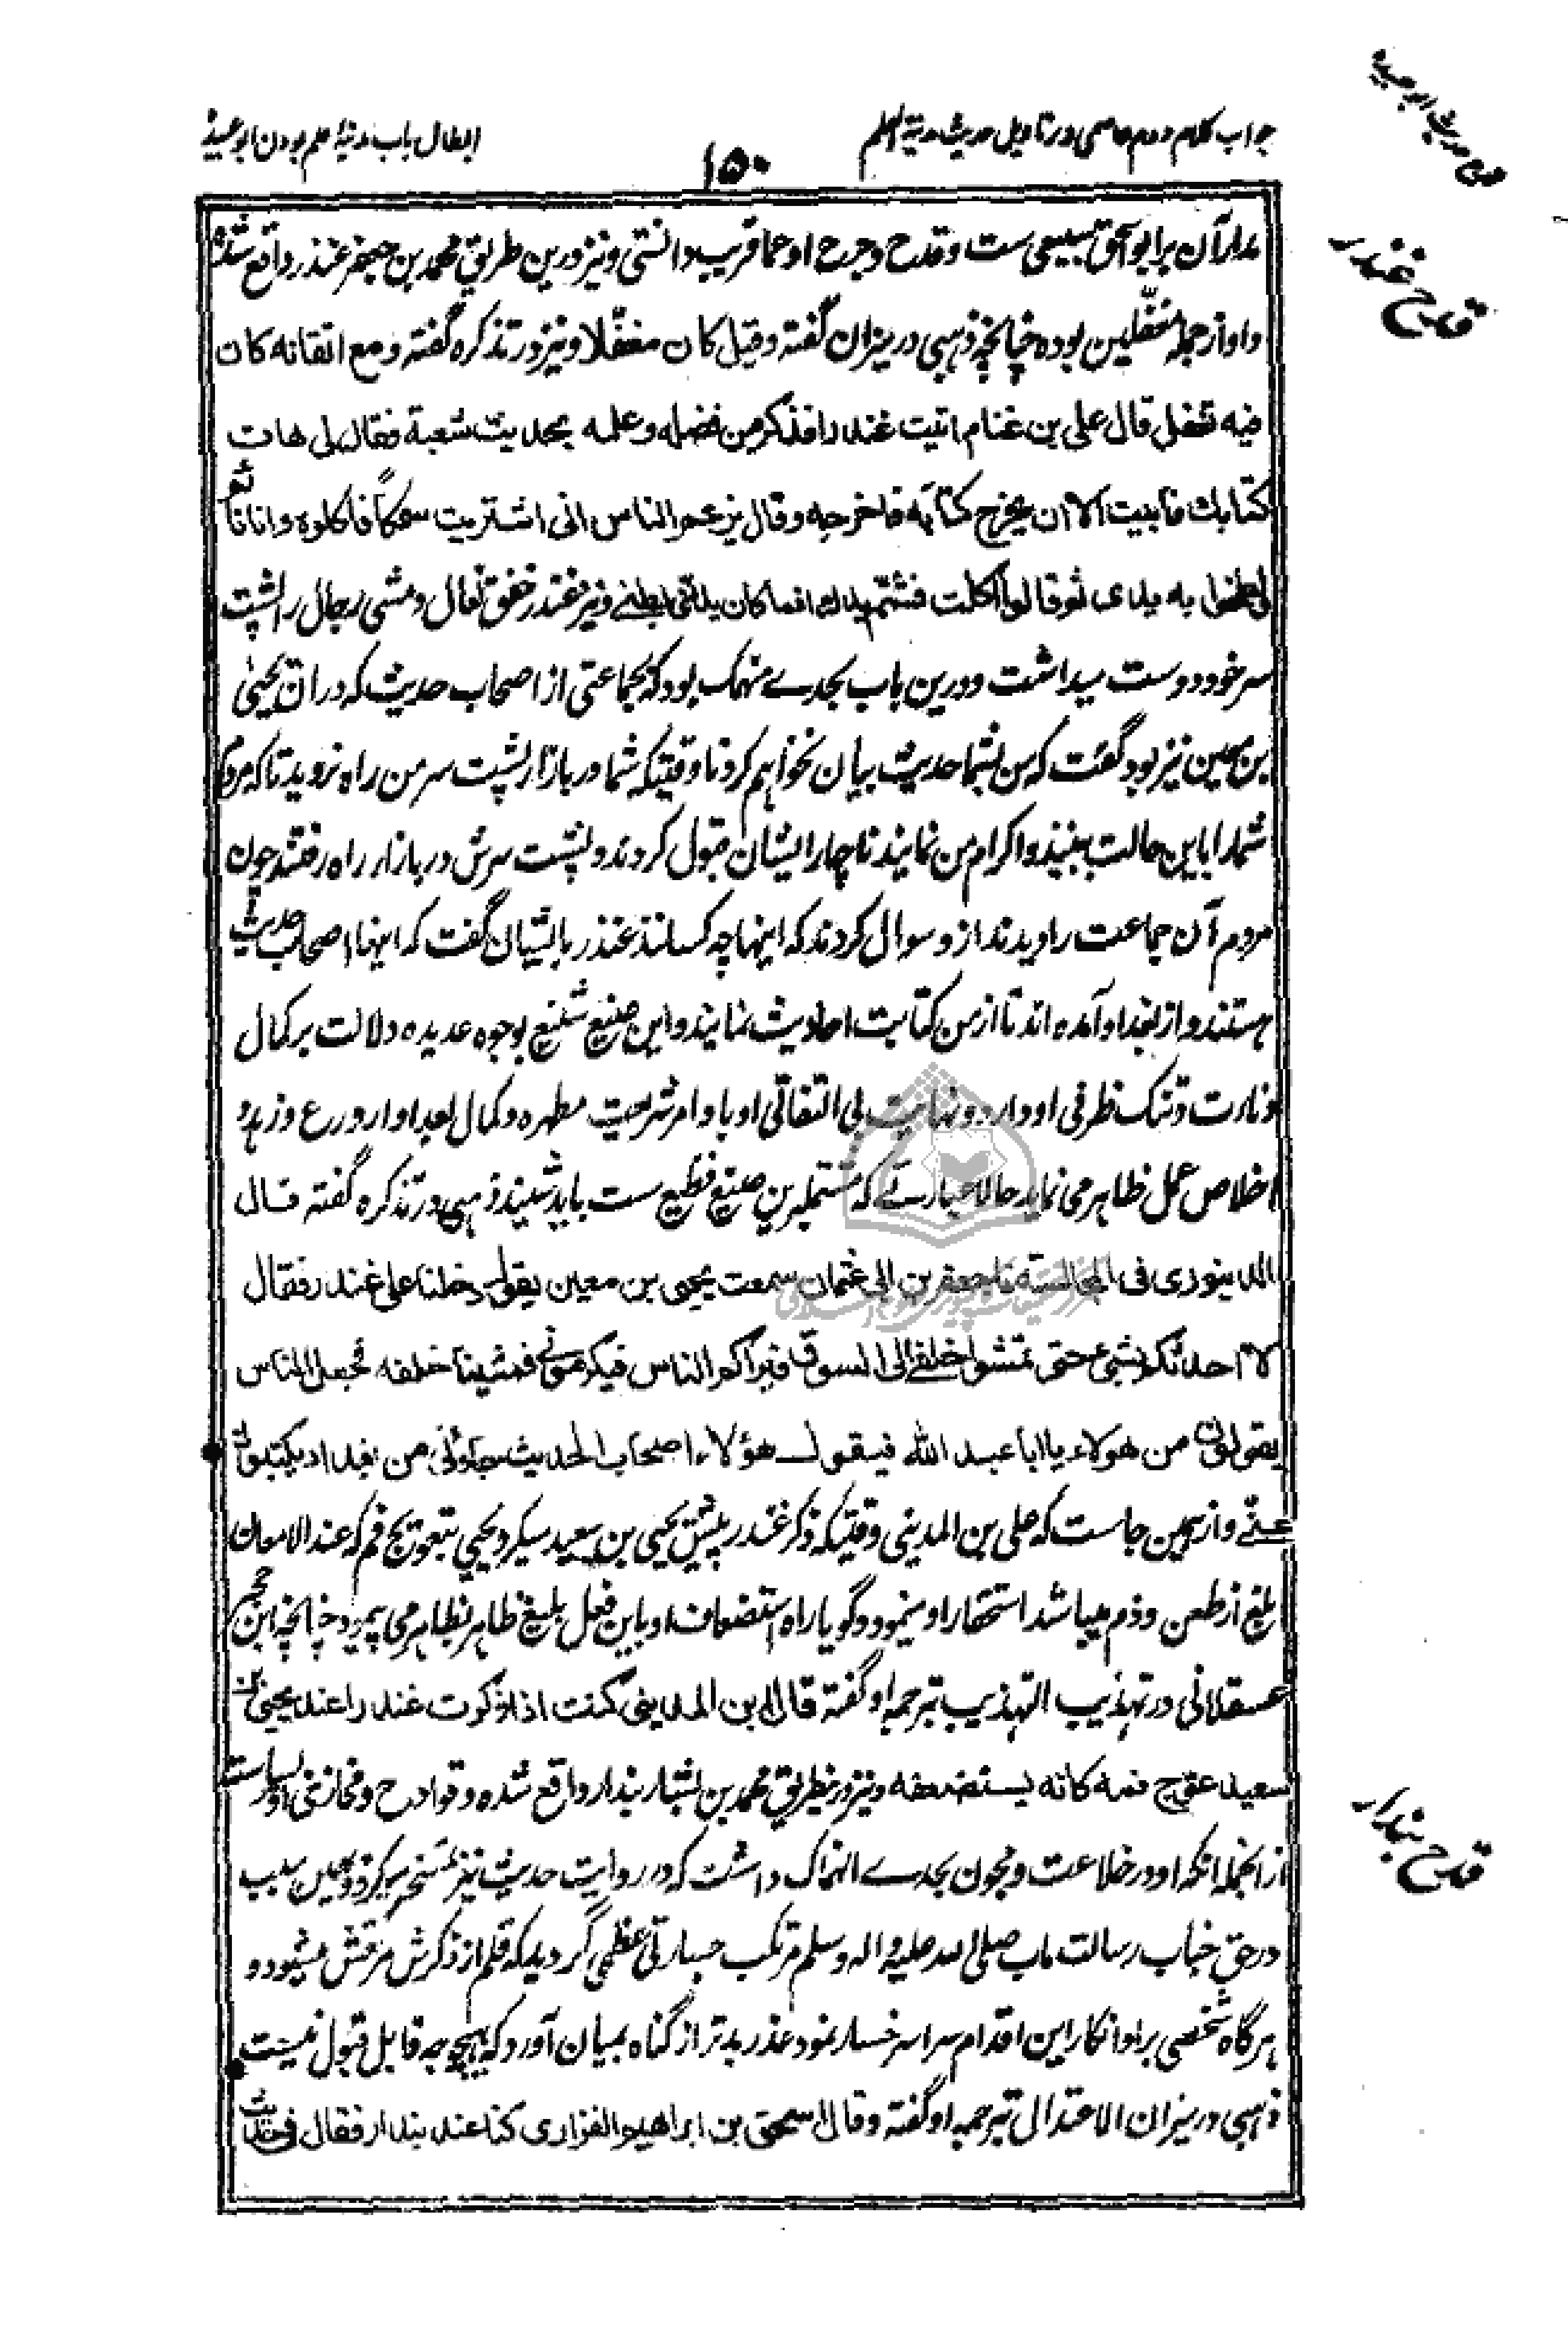 جواب کلام دوم عاصمی در تاویل حدیث مدینة العلم
۱۵۰
ابطال باب مدینهٔ علم بودن ابو عبیده
قدح حدیث ابو عبیده
مدار آن بر ابو اسحق سبیعی ست و قدح و جرح او عما قریب دانستی و نیز درین طریق محمد بن جعفر غندر واقع شده
قدح غندر
و او از جمله مغفّلین بوده چنانچه ذهبی در میزان گفته و قیل کان مغفّلا و نیز در تذکره گفته و مع اتقانه کان
فیه تغفل قال علی بن غنام اتیت غندرا فذکر من فضله و علمه بحدیث شعبة فقال لی هات
کتابک فابیت الا ان یخرج کتابه فاخرجه و قال یزعم الناس انی اشتریت سمکاً فاکلوه و انا نائم
لطخوا به یدی ثم قالوا اکلت فشمّ یدک افما کان یدلنی بطنی و نیز غندر خفق نعال و مشی رجال را پشت
سر خود دوست میداشت و درین باب بحدے منهمک بود که بجماعتی از اصحاب حدیث که در ان یحیی
بن معین نیز بود گفت که من بشما حدیث بیان نخواهم کرد تا وقتیکه شما در بازار پشت سر من راه نروید تا که مردم
شما را باین حالت ببینند و اکرام من نمایند ناچار ایشان قبول کردند و پشت سرش در بازار راه رفتند چون
مردم آن جماعت را دیدند از و سوال کردند که اینها چه کسانند غندر بایشان گفت که اینها اصحاب حدیث
هستند و از بغداد آمده اند تا از من کتابت احادیث نمایند و این صنیع شنیع بوجوه عدیده دلالت بر کمال
و نارت و تنک ظرفی او دارد و نهایت بی التفاتی او با وامر شریعت مطهره و کمال بعد او از ورع و زهد و
اخلاص عمل ظاهر می نماید حالا عبارتے که مشتمل برین صنیع فظیع ست باید شنید ذهبی در تذکره گفته قال
الدینوری فی المجالسة نا جعفر بن ابی عثمان سمعت یحیی بن معین یقول دخلنا علی غندر فقال
لا احدثکم بشیء حتی تمشوا خلفی الی السوق فیراکم الناس فیکرمونی فمشینا خلفه فجعل الناس
یقولون من هولاء یا ابا عبد الله فیقول هؤلاء اصحاب الحدیث جاؤنی من بغداد یکتبون
عنّی و از همین جاست که علی بن المدینی وقتیکه ذکر غندر پیش یحیی بن سعید میکرد یحیی بتعویج فم که عند الامعان
ابلغ از طعن و ذم میباشد استحقار او مینمود و گویا راه استضعاف او باین فعل بلیغ ظاهر بظاهر می پیمود چنانچه ابن حجر
عسقلانی در تهذیب التهذیب بترجمه او گفته قال ابن المدینی کنت اذا ذکرت غندرا عند یحیی بن
سعید عوّج فمه کانه یستضعفه و نیز درینطریق محمد بن بشار بندار واقع شده و قوادح و مخازی او بسیارست
قدح بندار
از انجمله انکه او در خلاعت و مجون بحدے انهماک داشت که در روایت حدیث نیز تمسخر میکرد و بهمین سبب
در حق جناب رسالت ماب صلی الله علیه و اله و سلم مرتکب جسارتی عظمی گردید که قلم از ذکرش مرتعش میشود و
هرگاه شخصی بر او انکار این اقدام سراسر خسار نمود عذر بدتر از گناه بمیان آورد که بهیچوجه قابل قبول نیست
ذهبی در میزان الاعتدال بترجمه او گفته و قال اسحق بن ابراهیم الفزاری کنا عند بندار فقال فی حدیث